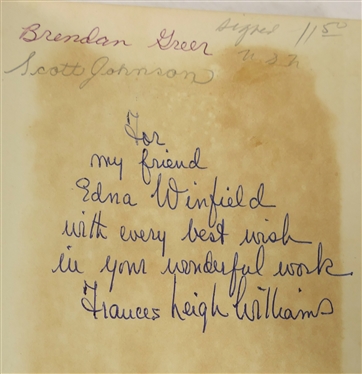 Brendan Greer
Signed 11.50
Scott Johnson
For
my friend
Edna Winfield
with every best wish
in your wonderful work.
Frances Leigh Williams